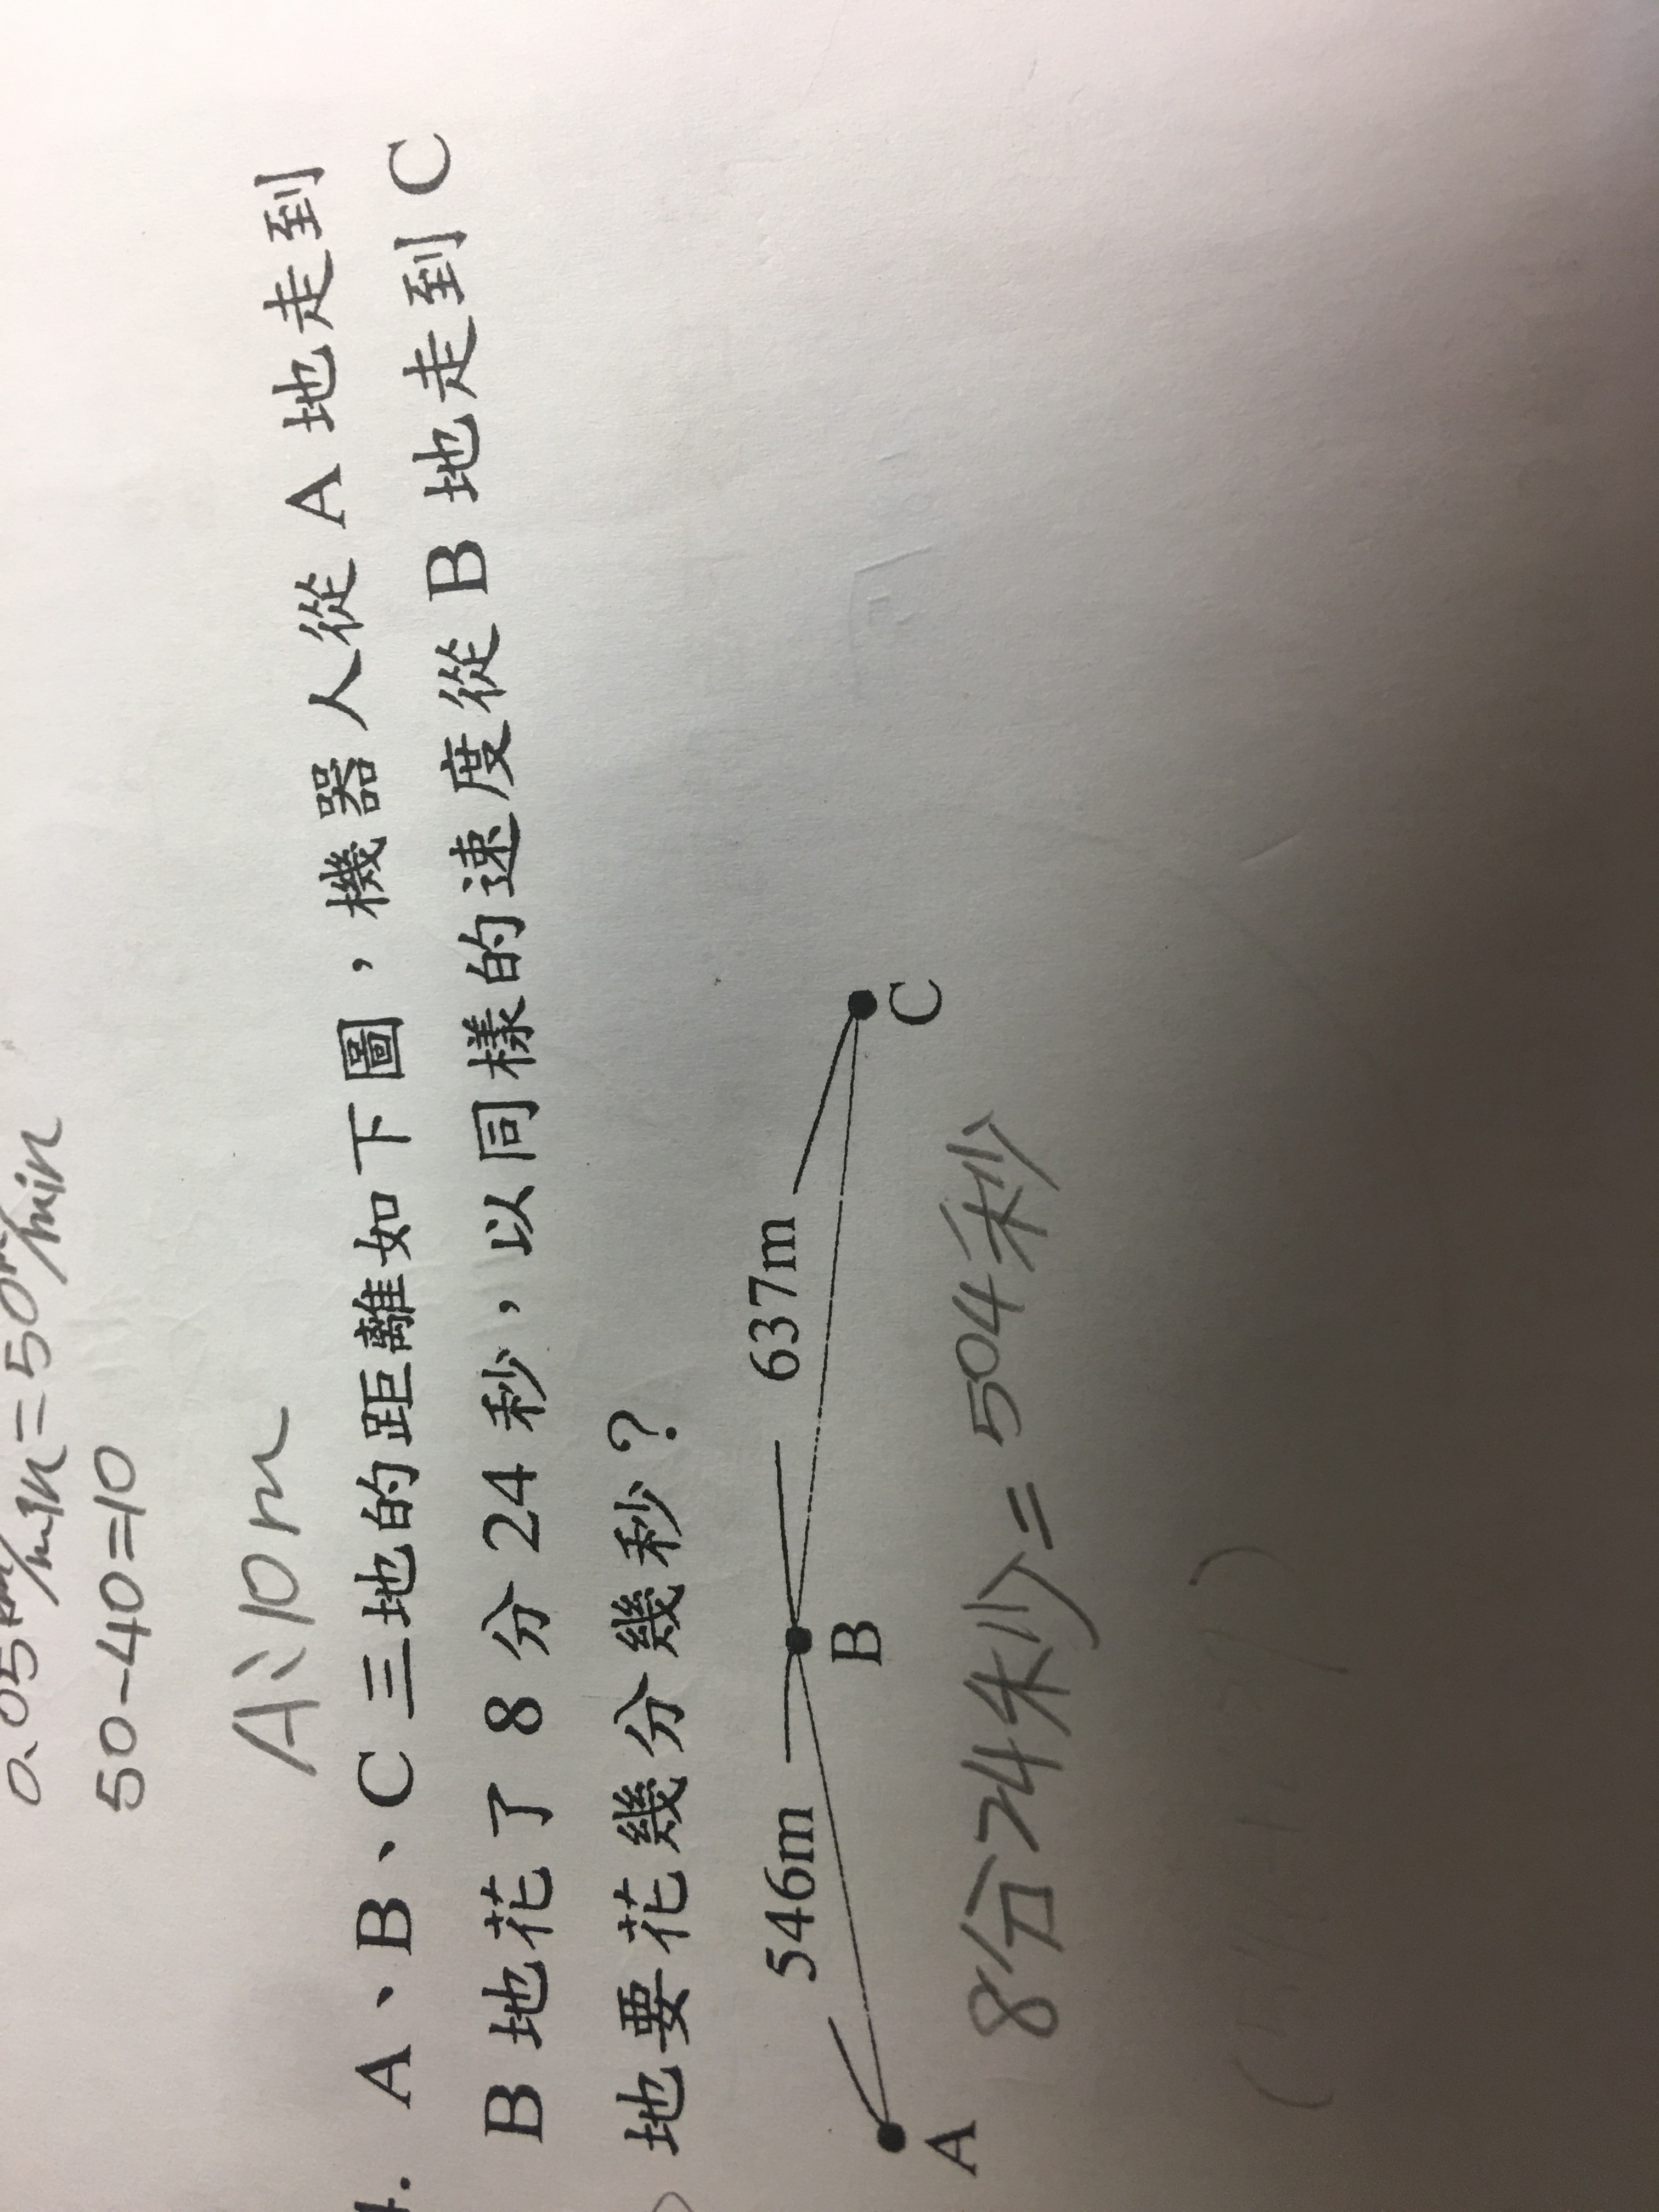 0.05km/min=50m/min
50-40=10
A:10m
4. A、B、C 三地的距離如下圖，機器人從 A 地走到
B 地花了 8 分 24 秒，以同樣的速度從 B 地走到 C
地要花幾分幾秒？
546m 637m
A B C
8分24秒=504秒